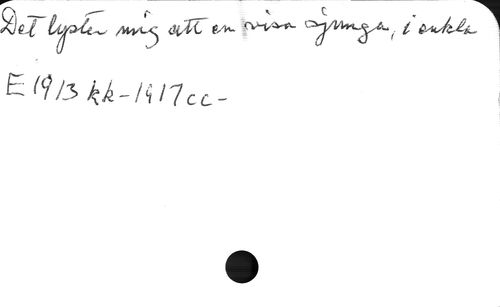 Det lyster mig att en visa sjunga, i enkla
E 1913 kk-1917cc-